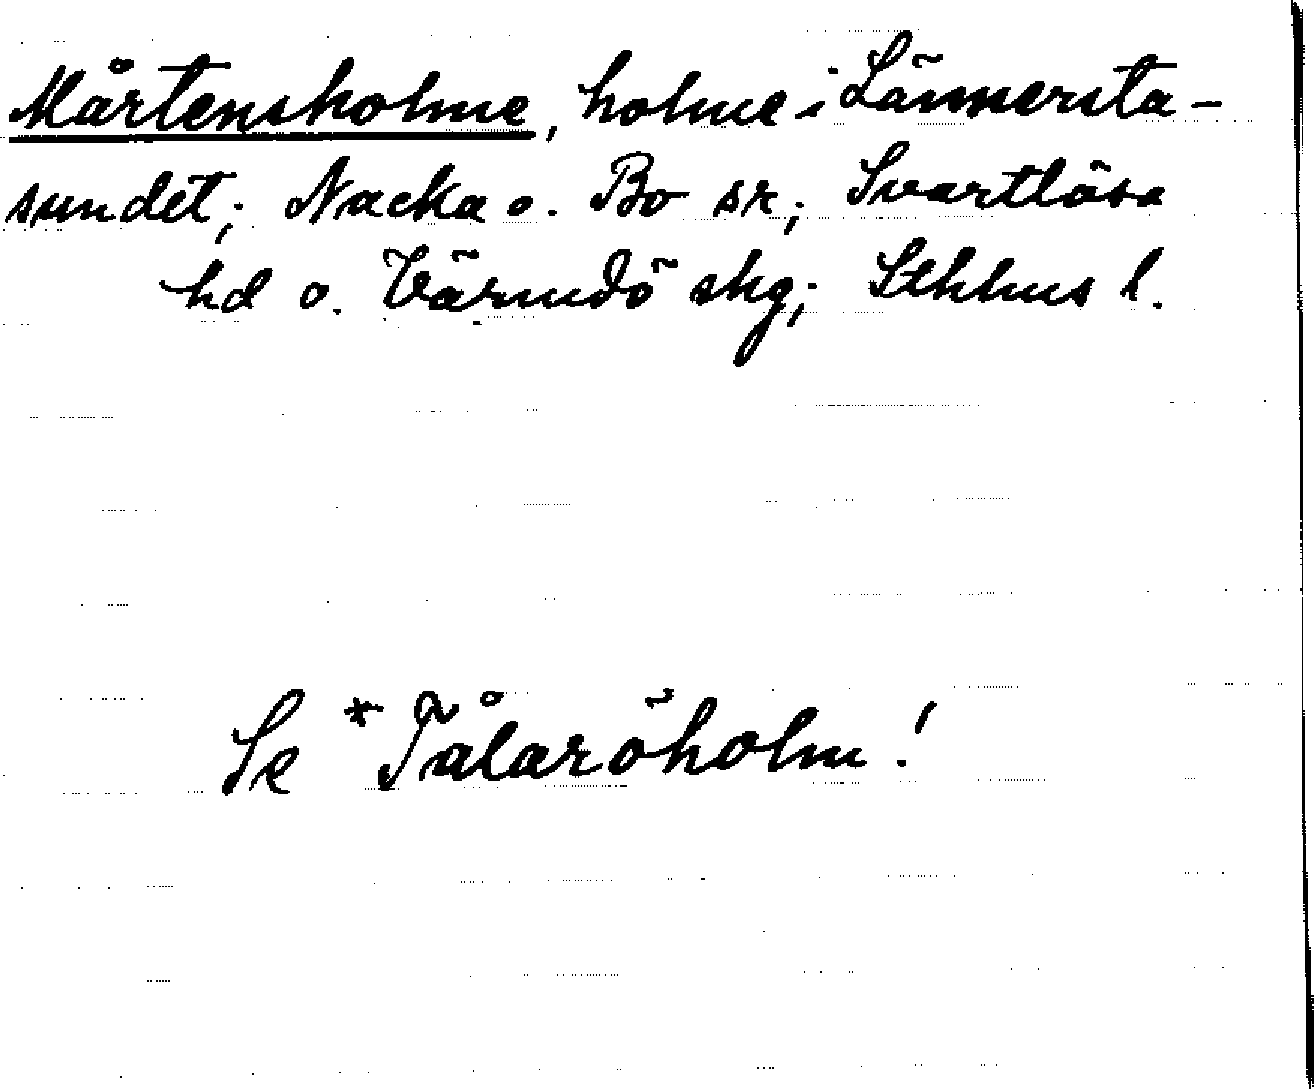 Mårtensholme, holme i Lännersta-
sundet; Nacka o. Bo sr; Svartlösa
hd o. Värmdö skg; Sthlms l.
Se *Tålaröholm!